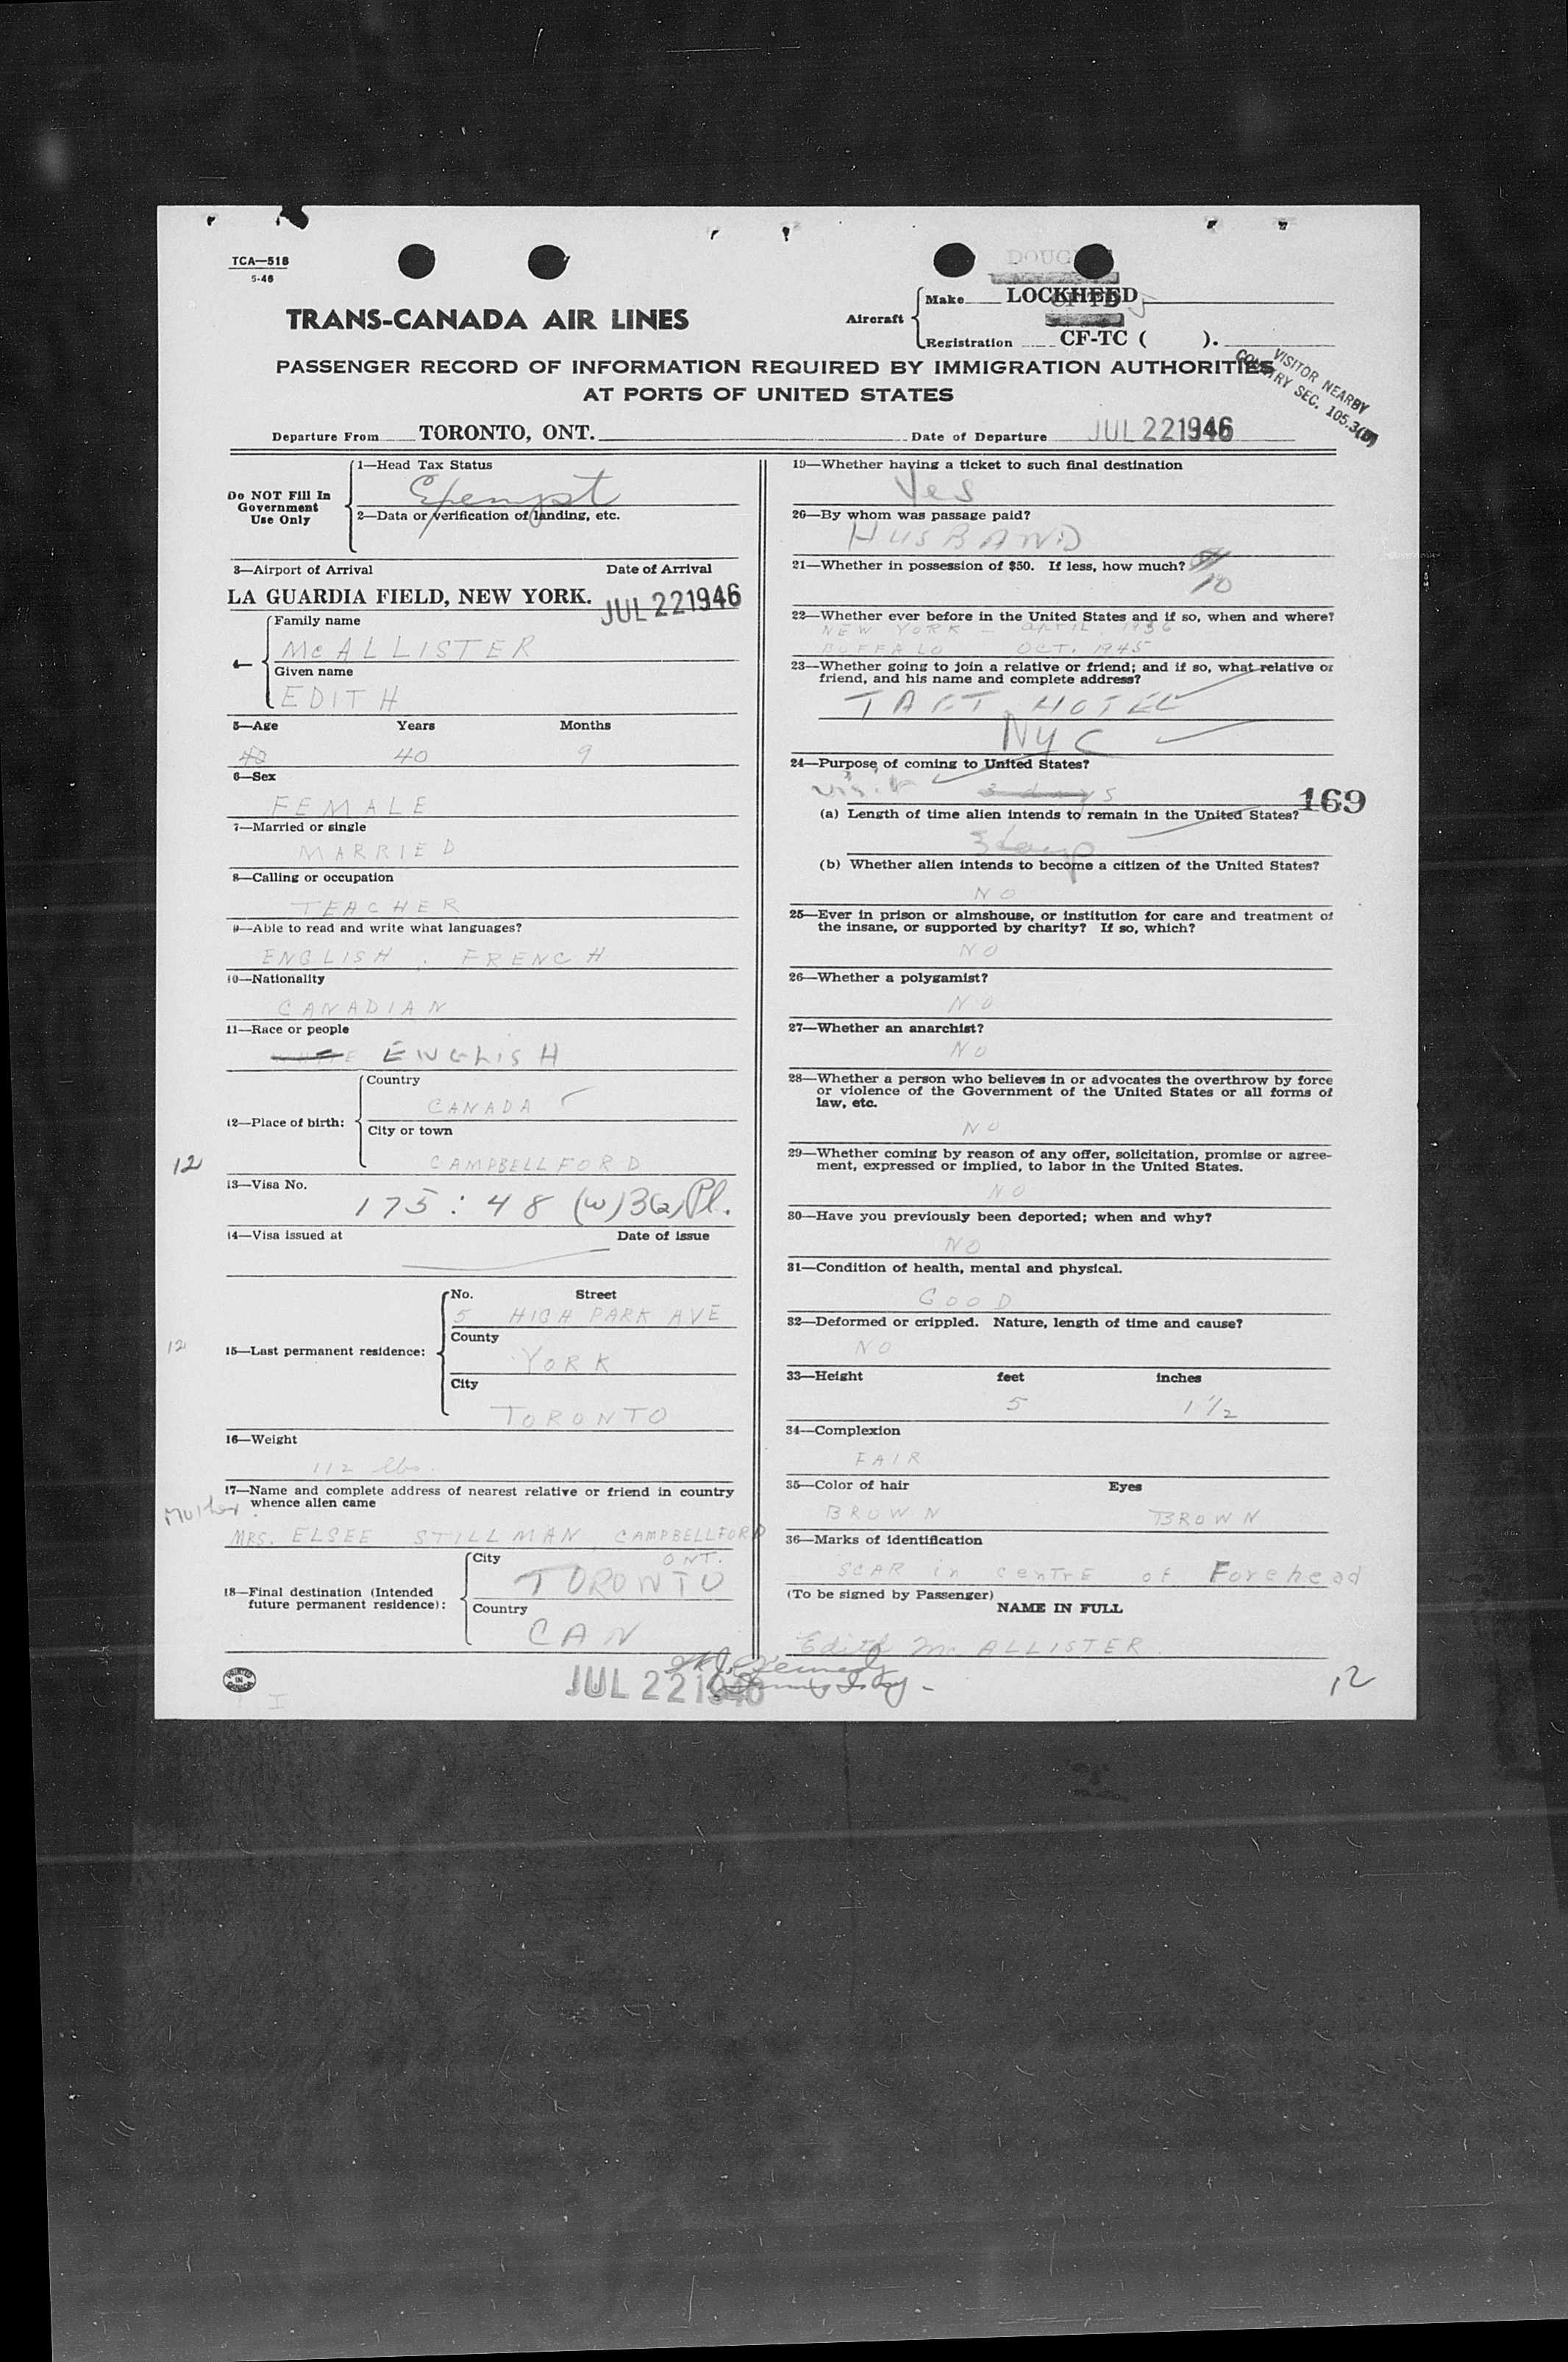 TCA—518
5-46
DOUG
Make LOCKHEED
TRANS-CANADA AIR LINES
Aircraft
Registration CF-TC ( ).
PASSENGER RECORD OF INFORMATION REQUIRED BY IMMIGRATION AUTHORITIES
AT PORTS OF UNITED STATES
VISITOR NEARBY
COUNTRY SEC. 105.3(B)
Departure From TORONTO, ONT. Date of Departure JUL 22 1946
Do NOT Fill In
Government
Use Only
1—Head Tax Status
Exempt
2—Data or verification of landing, etc.
3—Airport of Arrival Date of Arrival
LA GUARDIA FIELD, NEW YORK. JUL 22 1946
4—
Family name
McALLISTER
Given name
EDITH
5—Age Years Months
40 40 9
6—Sex
FEMALE
7—Married or single
MARRIED
8—Calling or occupation
TEACHER
9—Able to read and write what languages?
ENGLISH . FRENCH
10—Nationality
CANADIAN
11—Race or people
ENGLISH
12—Place of birth:
Country
CANADA
City or town
12
CAMPBELLFORD
13—Visa No.
175 : 48 (w) 3(2) Pl.
14—Visa issued at Date of issue
15—Last permanent residence:
No. Street
5 HIGH PARK AVE
County
12
YORK
City
TORONTO
16—Weight
112 lbs.
17—Name and complete address of nearest relative or friend in country
whence alien came
Mother
MRS. ELSEE STILLMAN CAMPBELLFORD
ONT.
18—Final destination (Intended
future permanent residence):
City
TORONTO
Country
CAN
PRINTED IN CANADA
JUL 22 1946
19—Whether having a ticket to such final destination
Yes
20—By whom was passage paid?
HUSBAND
21—Whether in possession of $50. If less, how much?
10
22—Whether ever before in the United States and if so, when and where?
NEW YORK — APRIL 1936
BUFFALO OCT. 1945
23—Whether going to join a relative or friend; and if so, what relative or
friend, and his name and complete address?
TAFT HOTEL
NYC
24—Purpose of coming to United States?
Visit 3 days
169
(a) Length of time alien intends to remain in the United States?
3 days
(b) Whether alien intends to become a citizen of the United States?
NO
25—Ever in prison or almshouse, or institution for care and treatment of
the insane, or supported by charity? If so, which?
NO
26—Whether a polygamist?
NO
27—Whether an anarchist?
NO
28—Whether a person who believes in or advocates the overthrow by force
or violence of the Government of the United States or all forms of
law, etc.
NO
29—Whether coming by reason of any offer, solicitation, promise or agree-
ment, expressed or implied, to labor in the United States.
NO
30—Have you previously been deported; when and why?
NO
31—Condition of health, mental and physical.
GOOD
32—Deformed or crippled. Nature, length of time and cause?
NO
33—Height feet inches
5 1 1/2
34—Complexion
FAIR
35—Color of hair Eyes
BROWN BROWN
36—Marks of identification
SCAR in CENTRE of Forehead
(To be signed by Passenger)
NAME IN FULL
Edith McALLISTER
12